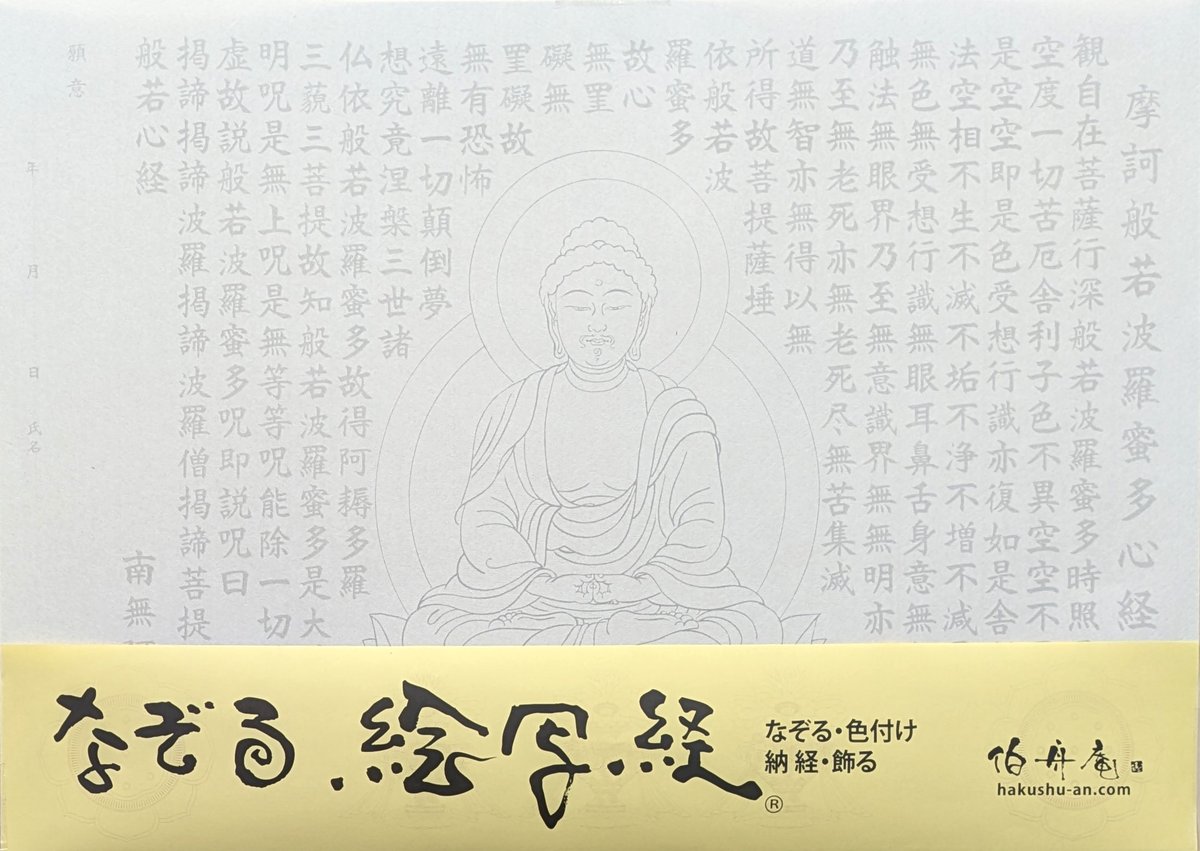 摩訶般若波羅蜜多心経
観自在菩薩行深般若波羅蜜多時照
空度一切苦厄舎利子色不異空空不
是空空即是色受想行識亦復如是舎
法空相不生不滅不垢不浄不増不減
無色無受想行識無眼耳鼻舌身意無
触法無眼界乃至無意識界無無明亦
乃至無老死亦無老死尽無苦集滅
道無智亦無得以無
所得故菩提薩埵
依般若波
羅蜜多
故心
無罣
礙無
罣礙故
無有恐怖
遠離一切顛倒夢
想究竟涅槃三世諸
仏依般若波羅蜜多故得阿耨多羅
三藐三菩提故知般若波羅蜜多是大
明呪是無上呪是無等等呪能除一切
虚故説般若波羅蜜多呪即説呪曰
掲諦掲諦波羅掲諦波羅僧掲諦菩提
般若心経
南無
願意
年 月 日 氏名
なぞる絵写経®
なぞる・色付け
納経・飾る
伯舟庵
hakushu-an.com